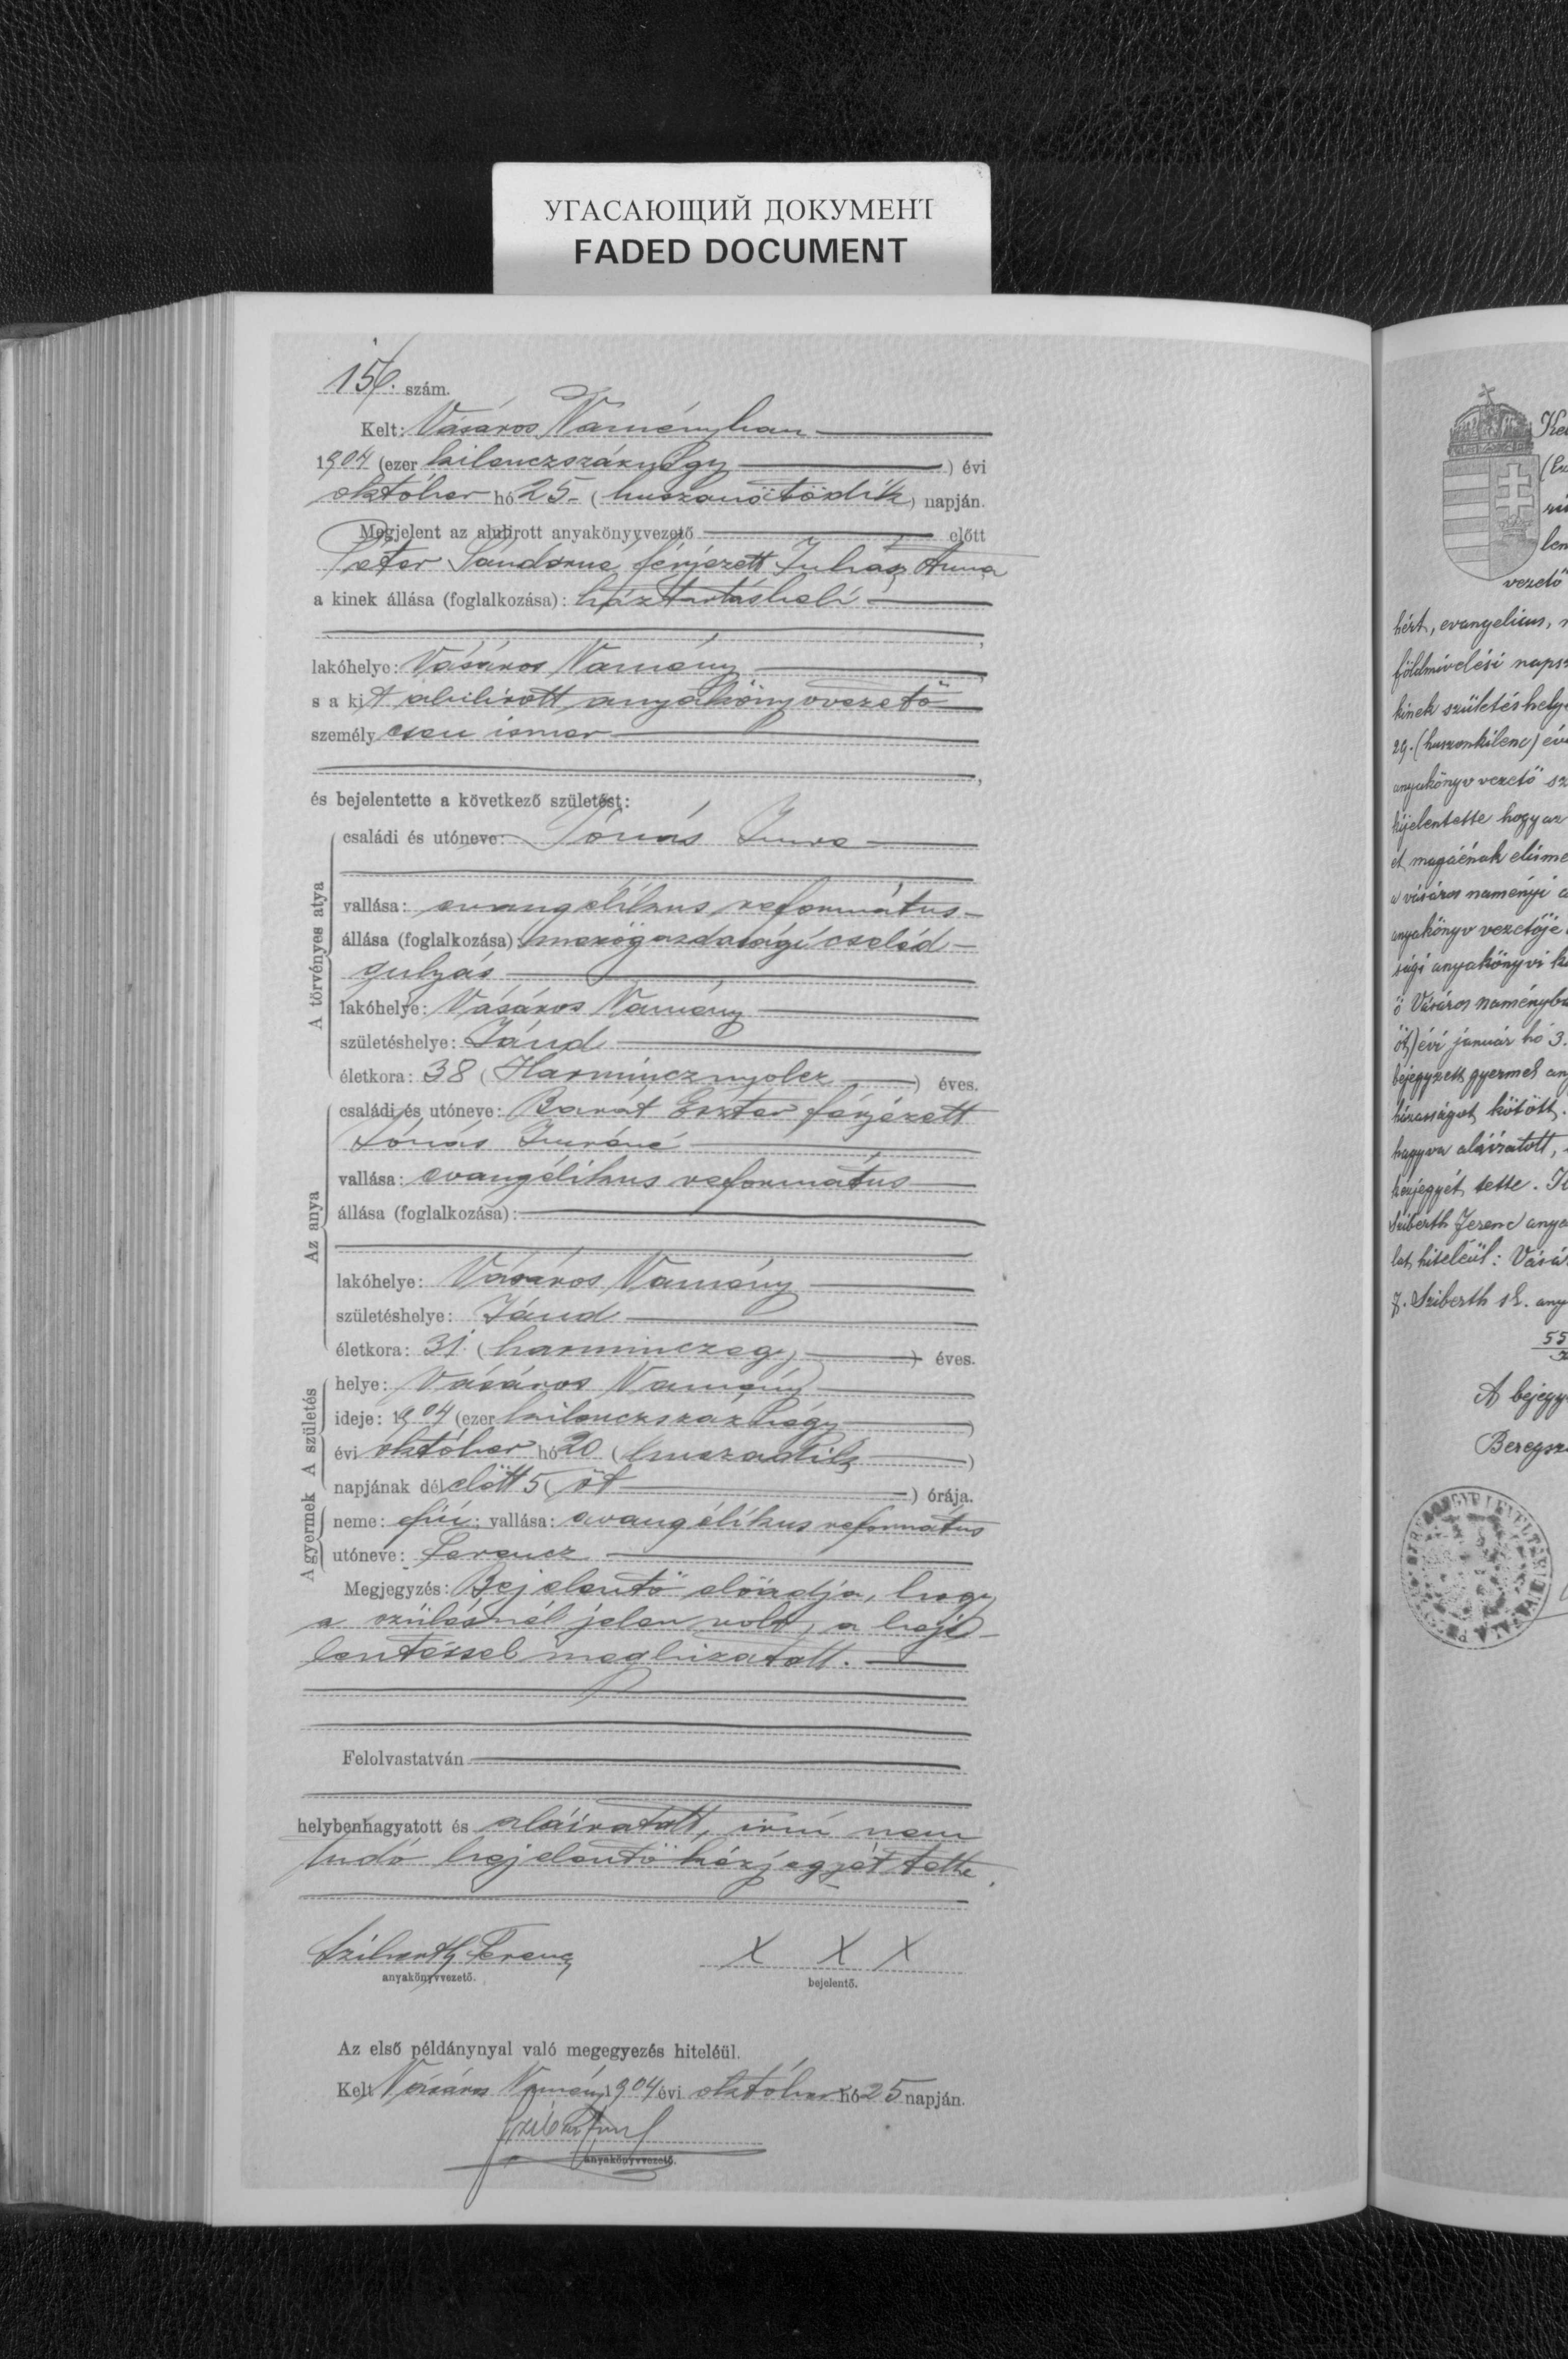 УГАСАЮЩИЙ ДОКУМЕНТ
FADED DOCUMENT
156. szám.
Kelt: Vásáros Naményban
1904 (ezer kilenczszáznégy) évi
október hó 25- (huszonötödik) napján.
Megjelent az alulirott anyakönyvvezető előtt
Péter Sándorné férjezett Juhász Anna
a kinek állása (foglalkozása): háztartásbeli
lakóhelye: Vásáros Namény
s a kit alulirott anyakönyvvezető
személyesen ismer
és bejelentette a következő születést:
A törvényes atya
családi és utóneve: Jónás Imre
vallása: evangélikus református-
állása (foglalkozása): mezőgazdasági cseléd-
gulyás
lakóhelye: Vásáros Namény
születéshelye: Jánd
életkora: 38 (Harmincznyolcz) éves.
Az anya
családi és utóneve: Barát Eszter férjezett
Jónás Imréné
vallása: evangélikus református
állása (foglalkozása):
lakóhelye: Vásáros Namény
születéshelye: Jánd
életkora: 31 (harminczegy) éves.
A születés
helye: Vásáros Namény
ideje: 1904 (ezer kilenczszáznégy)
évi október hó 20 (huszadik)
napjának délelőtt 5 (öt) órája.
A gyermek
neme: fiú; vallása: evangélikus református
utóneve: Ferencz
Megjegyzés: Bejelentő előadja, hogy
a szülésnél jelen volt, a beje-
lentéssel megbizatott.
Felolvastatván
helybenhagyatott és aláiratott, irni nem
tudó bejelentő kézjegyét tette.
Sziberth Ferenc X X X
anyakönyvvezető. bejelentő.
Az első példánynyal való megegyezés hiteléül.
Kelt Vásáros Namény 1904 évi október hó 25 napján.
anyakönyvvezető.
vezető
hért, evangelicus,
földmivelési
kinek születéshely
29. (huszonkilenc) év
anyakönyvvezető sz
kijelentette hogy az
et magáénak elisme
a vásáros naményi a
anyakönyv vezetője
sági anyakönyvi k
ő Vásáros naményb
öt) évi január hó 3.
bejegyzett gyermek an
házasságot kötött.
hagyva aláiratott,
kézjegyét tette.
Sziberth Ferenc anya
lat hiteléül: Vásá
F. Sziberth sk. any
55
A bejegy
Beregsz